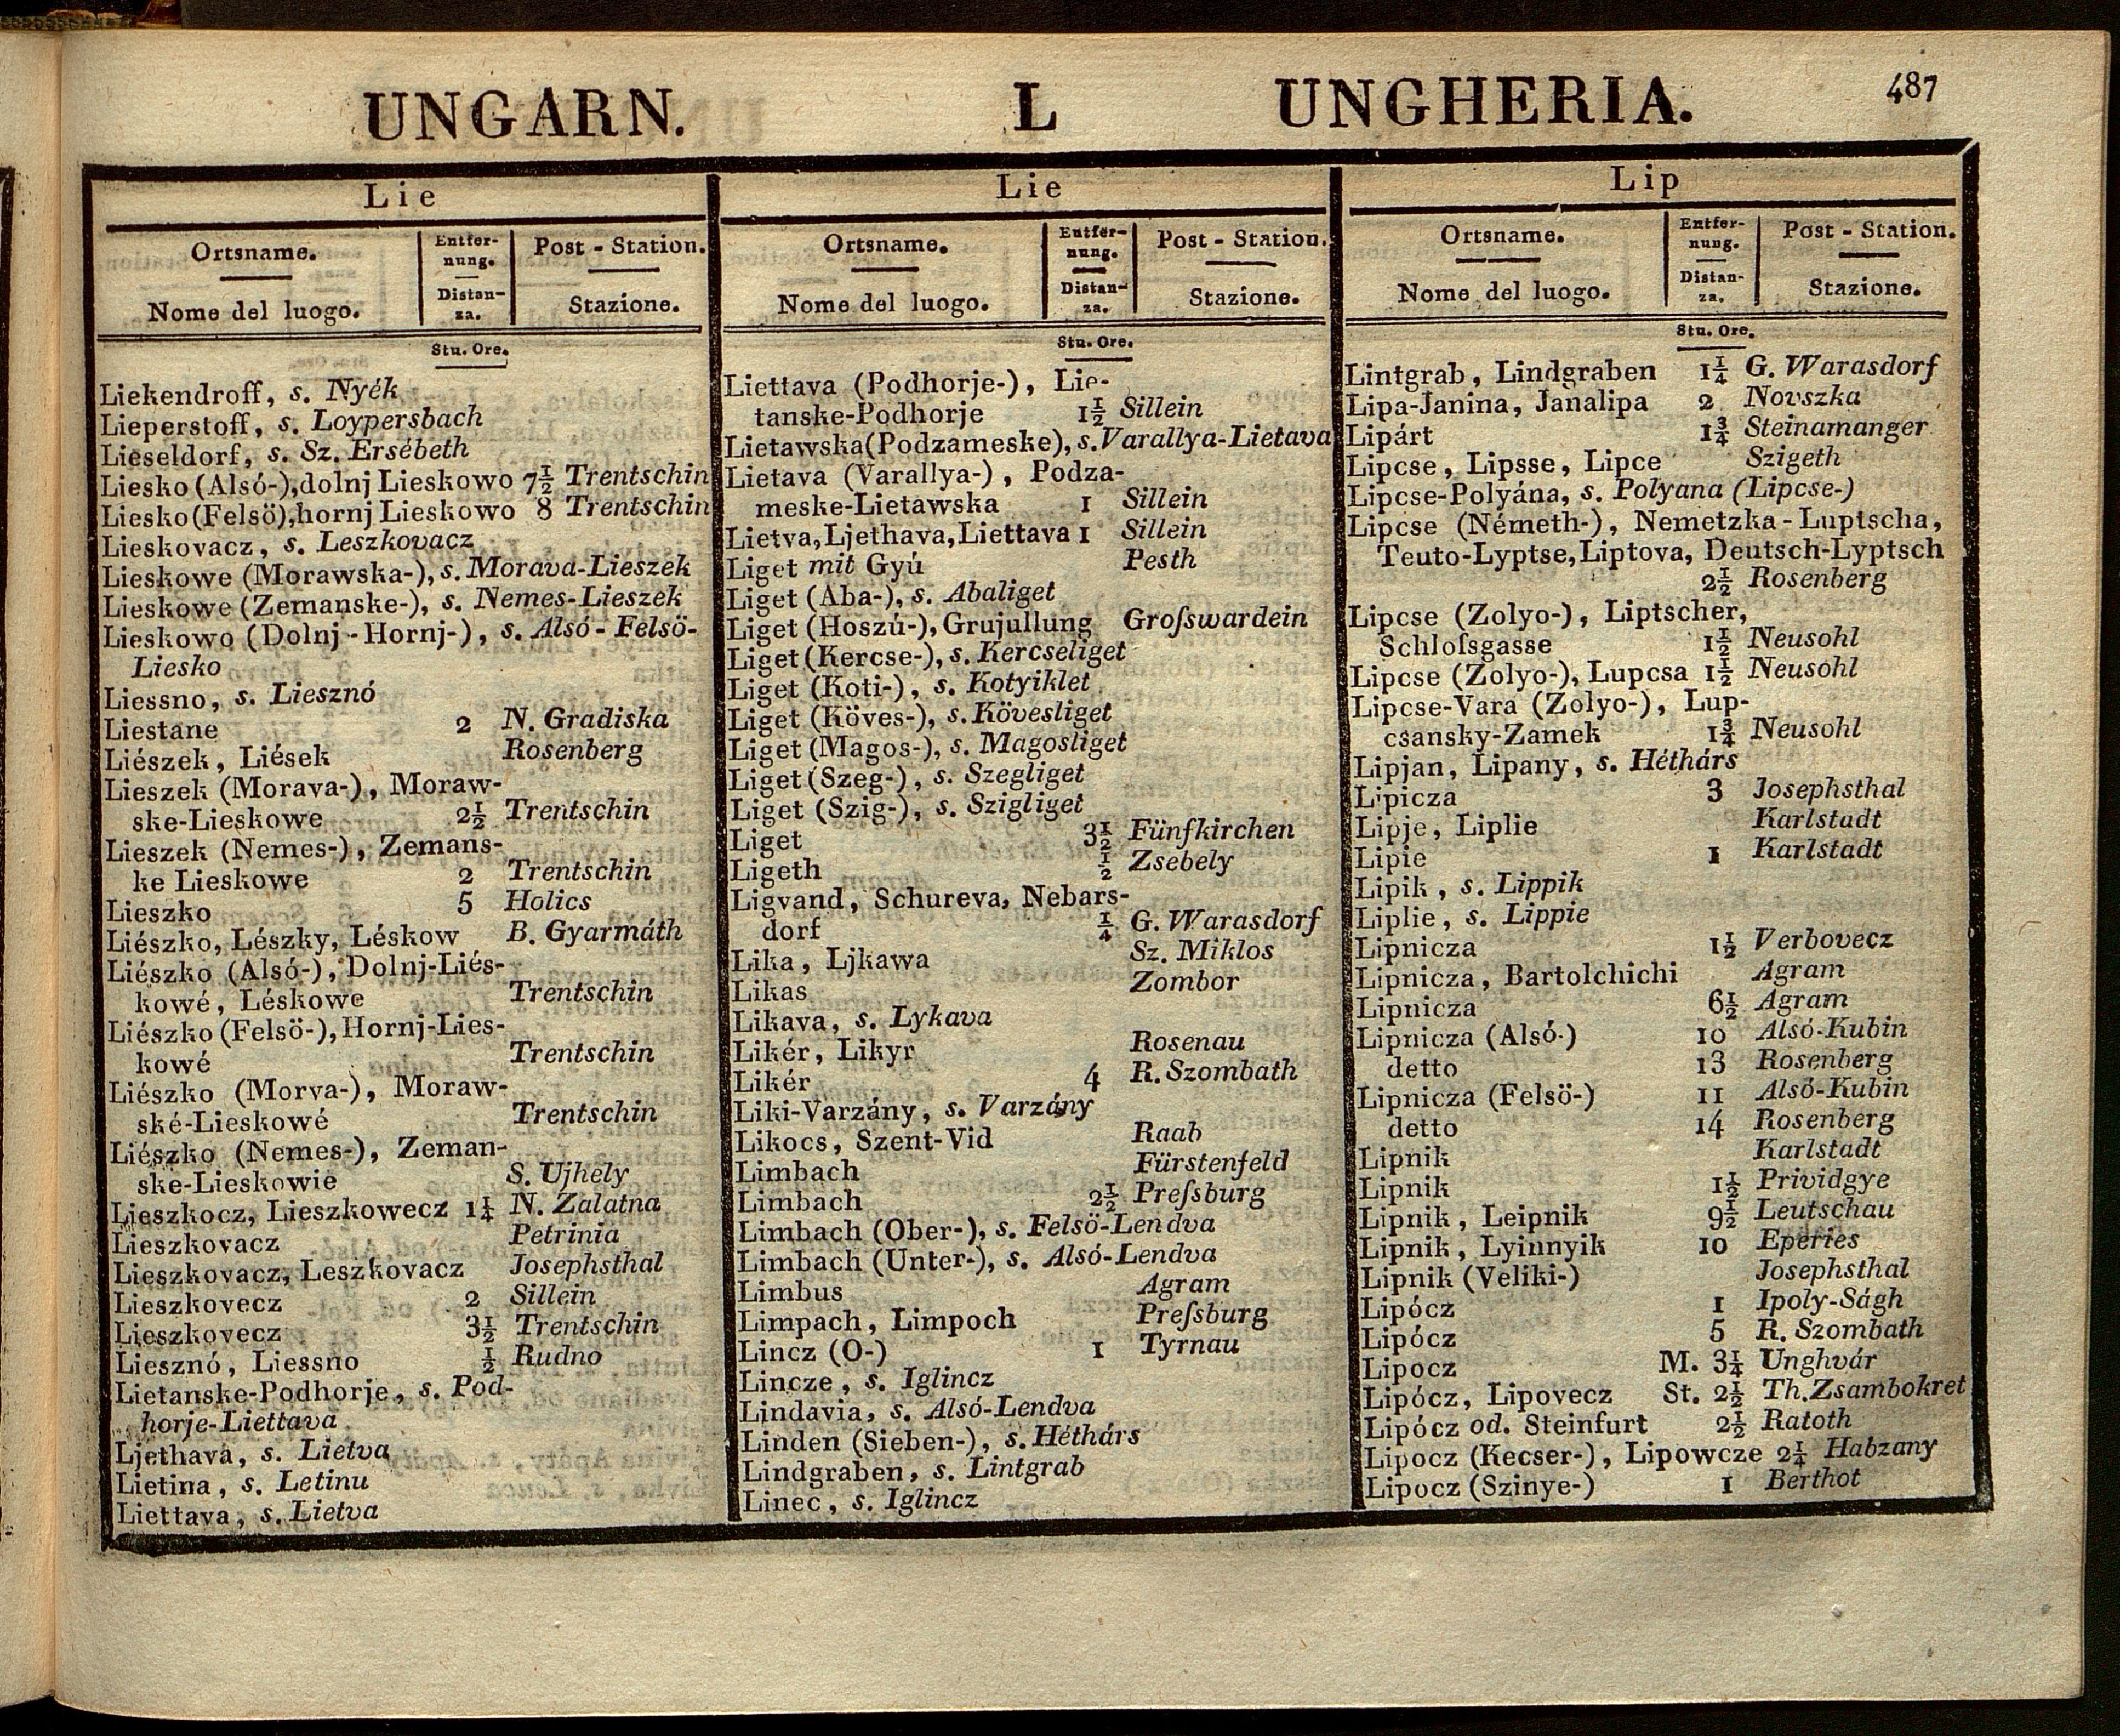 UNGARN. L UNGHERIA. 487
Lie
Ortsname. Entfer- Post - Station.
nung.
Nome del luogo. Distan- Stazione.
za.
Stu. Ore.
Liekendroff, s. Nyék
Lieperstoff, s. Loypersbach
Lieseldorf, s. Sz. Ersébeth
Liesko (Alsó-), dolnj Lieskowo 7½ Trentschin
Liesko (Felsö), hornj Lieskowo 8 Trentschin
Lieskovacz, s. Leszkovacz
Lieskowe (Morawska-), s. Morava-Lieszek
Lieskowe (Zemanske-), s. Nemes-Lieszek
Lieskowo (Dolnj-Hornj-), s. Alsó-Felsö-
Liesko
Liessno, s. Liesznó
Liestane 2 N. Gradiska
Liészek, Liések Rosenberg
Lieszek (Morava-), Moraw-
ske-Lieskowe 2½ Trentschin
Lieszek (Nemes-), Zemans-
ke Lieskowe 2 Trentschin
Lieszko 5 Holics
Liészko, Lészky, Léskow B. Gyarmáth
Liészko (Alsó-), Dolnj-Liés-
kowé, Léskowe Trentschin
Liészko (Felsö-), Hornj-Lies-
kowé Trentschin
Liészko (Morva-), Moraw-
ské-Lieskowé Trentschin
Liészko (Nemes-), Zeman-
ske-Lieskowie S. Ujhely
Lieszkocz, Lieszkowecz 1¼ N. Zalatna
Lieszkovacz Petrinia
Lieszkovacz, Leszkovacz Josephsthal
Lieszkovecz 2 Sillein
Lieszkovecz 3½ Trentschin
Liesznó, Liessno ½ Rudno
Lietanske-Podhorje, s. Pod-
horje-Liettava
Ljethava, s. Lietva
Lietina, s. Letinu
Liettava, s. Lietva
Lie
Ortsname. Entfer- Post - Station.
nung.
Nome del luogo. Distan- Stazione.
za.
Stu. Ore.
Liettava (Podhorje-), Lie-
tanske-Podhorje 1½ Sillein
Lietawska (Podzameske), s. Varallya-Lietava
Lietava (Varallya-), Podza-
meske-Lietawska 1 Sillein
Lietva, Ljethava, Liettava 1 Sillein
Liget mit Gyú Pesth
Liget (Aba-), s. Abaliget
Liget (Hoszú-), Grujullung Groſswardein
Liget (Kercse-), s. Kercseliget
Liget (Koti-), s. Kotyiklet
Liget (Köves-), s. Kövesliget
Liget (Magos-), s. Magosliget
Liget (Szeg-), s. Szegliget
Liget (Szig-), s. Szigliget
Liget 3½ Fünfkirchen
Ligeth ½ Zsebely
Ligvand, Schureva, Nebars-
dorf ¼ G. Warasdorf
Lika, Ljkawa Sz. Miklos
Likas Zombor
Likava, s. Lykava
Likér, Likyr Rosenau
Likér 4 R. Szombath
Liki-Varzány, s. Varzány
Likocs, Szent-Vid Raab
Limbach Fürstenfeld
Limbach 2½ Preſsburg
Limbach (Ober-), s. Felsö-Lendva
Limbach (Unter-), s. Alsó-Lendva
Limbus Agram
Limpach, Limpoch Preſsburg
Lincz (O-) 1 Tyrnau
Lincze, s. Iglincz
Lindavia, s. Alsó-Lendva
Linden (Sieben-), s. Héthárs
Lindgraben, s. Lintgrab
Linec, s. Iglincz
Lip
Ortsname. Entfer- Post - Station.
nung.
Nome del luogo. Distan- Stazione.
za.
Stu. Ore.
Lintgrab, Lindgraben 1¼ G. Warasdorf
Lipa-Janina, Janalipa 2 Novszka
Lipárt 1¾ Steinamanger
Lipcse, Lipsse, Lipce Szigeth
Lipcse-Polyána, s. Polyana (Lipcse-)
Lipcse (Németh-), Nemetzka-Luptscha,
Teuto-Lyptse, Liptova, Deutsch-Lyptsch
2½ Rosenberg
Lipcse (Zolyo-), Liptscher,
Schloſsgasse 1½ Neusohl
Lipcse (Zolyo-), Lupcsa 1½ Neusohl
Lipcse-Vara (Zolyo-), Lup-
csansky-Zamek 1¾ Neusohl
Lipjan, Lipany, s. Héthárs
Lipicza 3 Josephsthal
Lipje, Liplie Karlstadt
Lipie 1 Karlstadt
Lipik, s. Lippik
Liplie, s. Lippie
Lipnicza 1½ Verbovecz
Lipnicza, Bartolchichi Agram
Lipnicza 6½ Agram
Lipnicza (Alsó-) 10 Alsó-Kubin
detto 13 Rosenberg
Lipnicza (Felsö-) 11 Alsó-Kubin
detto 14 Rosenberg
Lipnik Karlstadt
Lipnik 1½ Prividgye
Lipnik, Leipnik 9½ Leutschau
Lipnik, Lyinnyik 10 Eperies
Lipnik (Veliki-) Josephsthal
Lipócz 1 Ipoly-Ságh
Lipócz 5 R. Szombath
Lipocz M. 3¼ Unghvár
Lipócz, Lipovecz St. 2½ Th. Zsambokret
Lipócz od. Steinfurt 2½ Ratoth
Lipocz (Kecser-), Lipowcze 2¼ Habzany
Lipocz (Szinye-) 1 Berthot